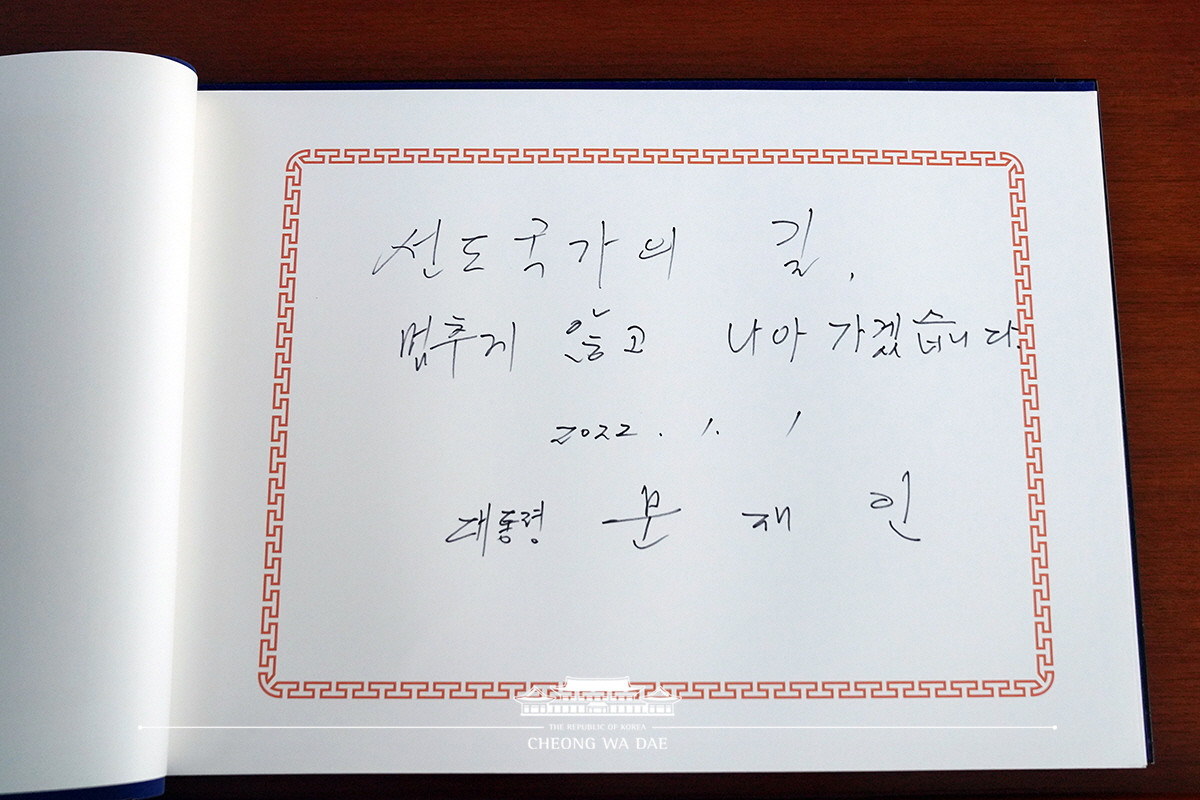 선도국가의 길,
멈추지 않고 나아가겠습니다.
2022. 1. 1
대통령 문재인
THE REPUBLIC OF KOREA
CHEONG WA DAE